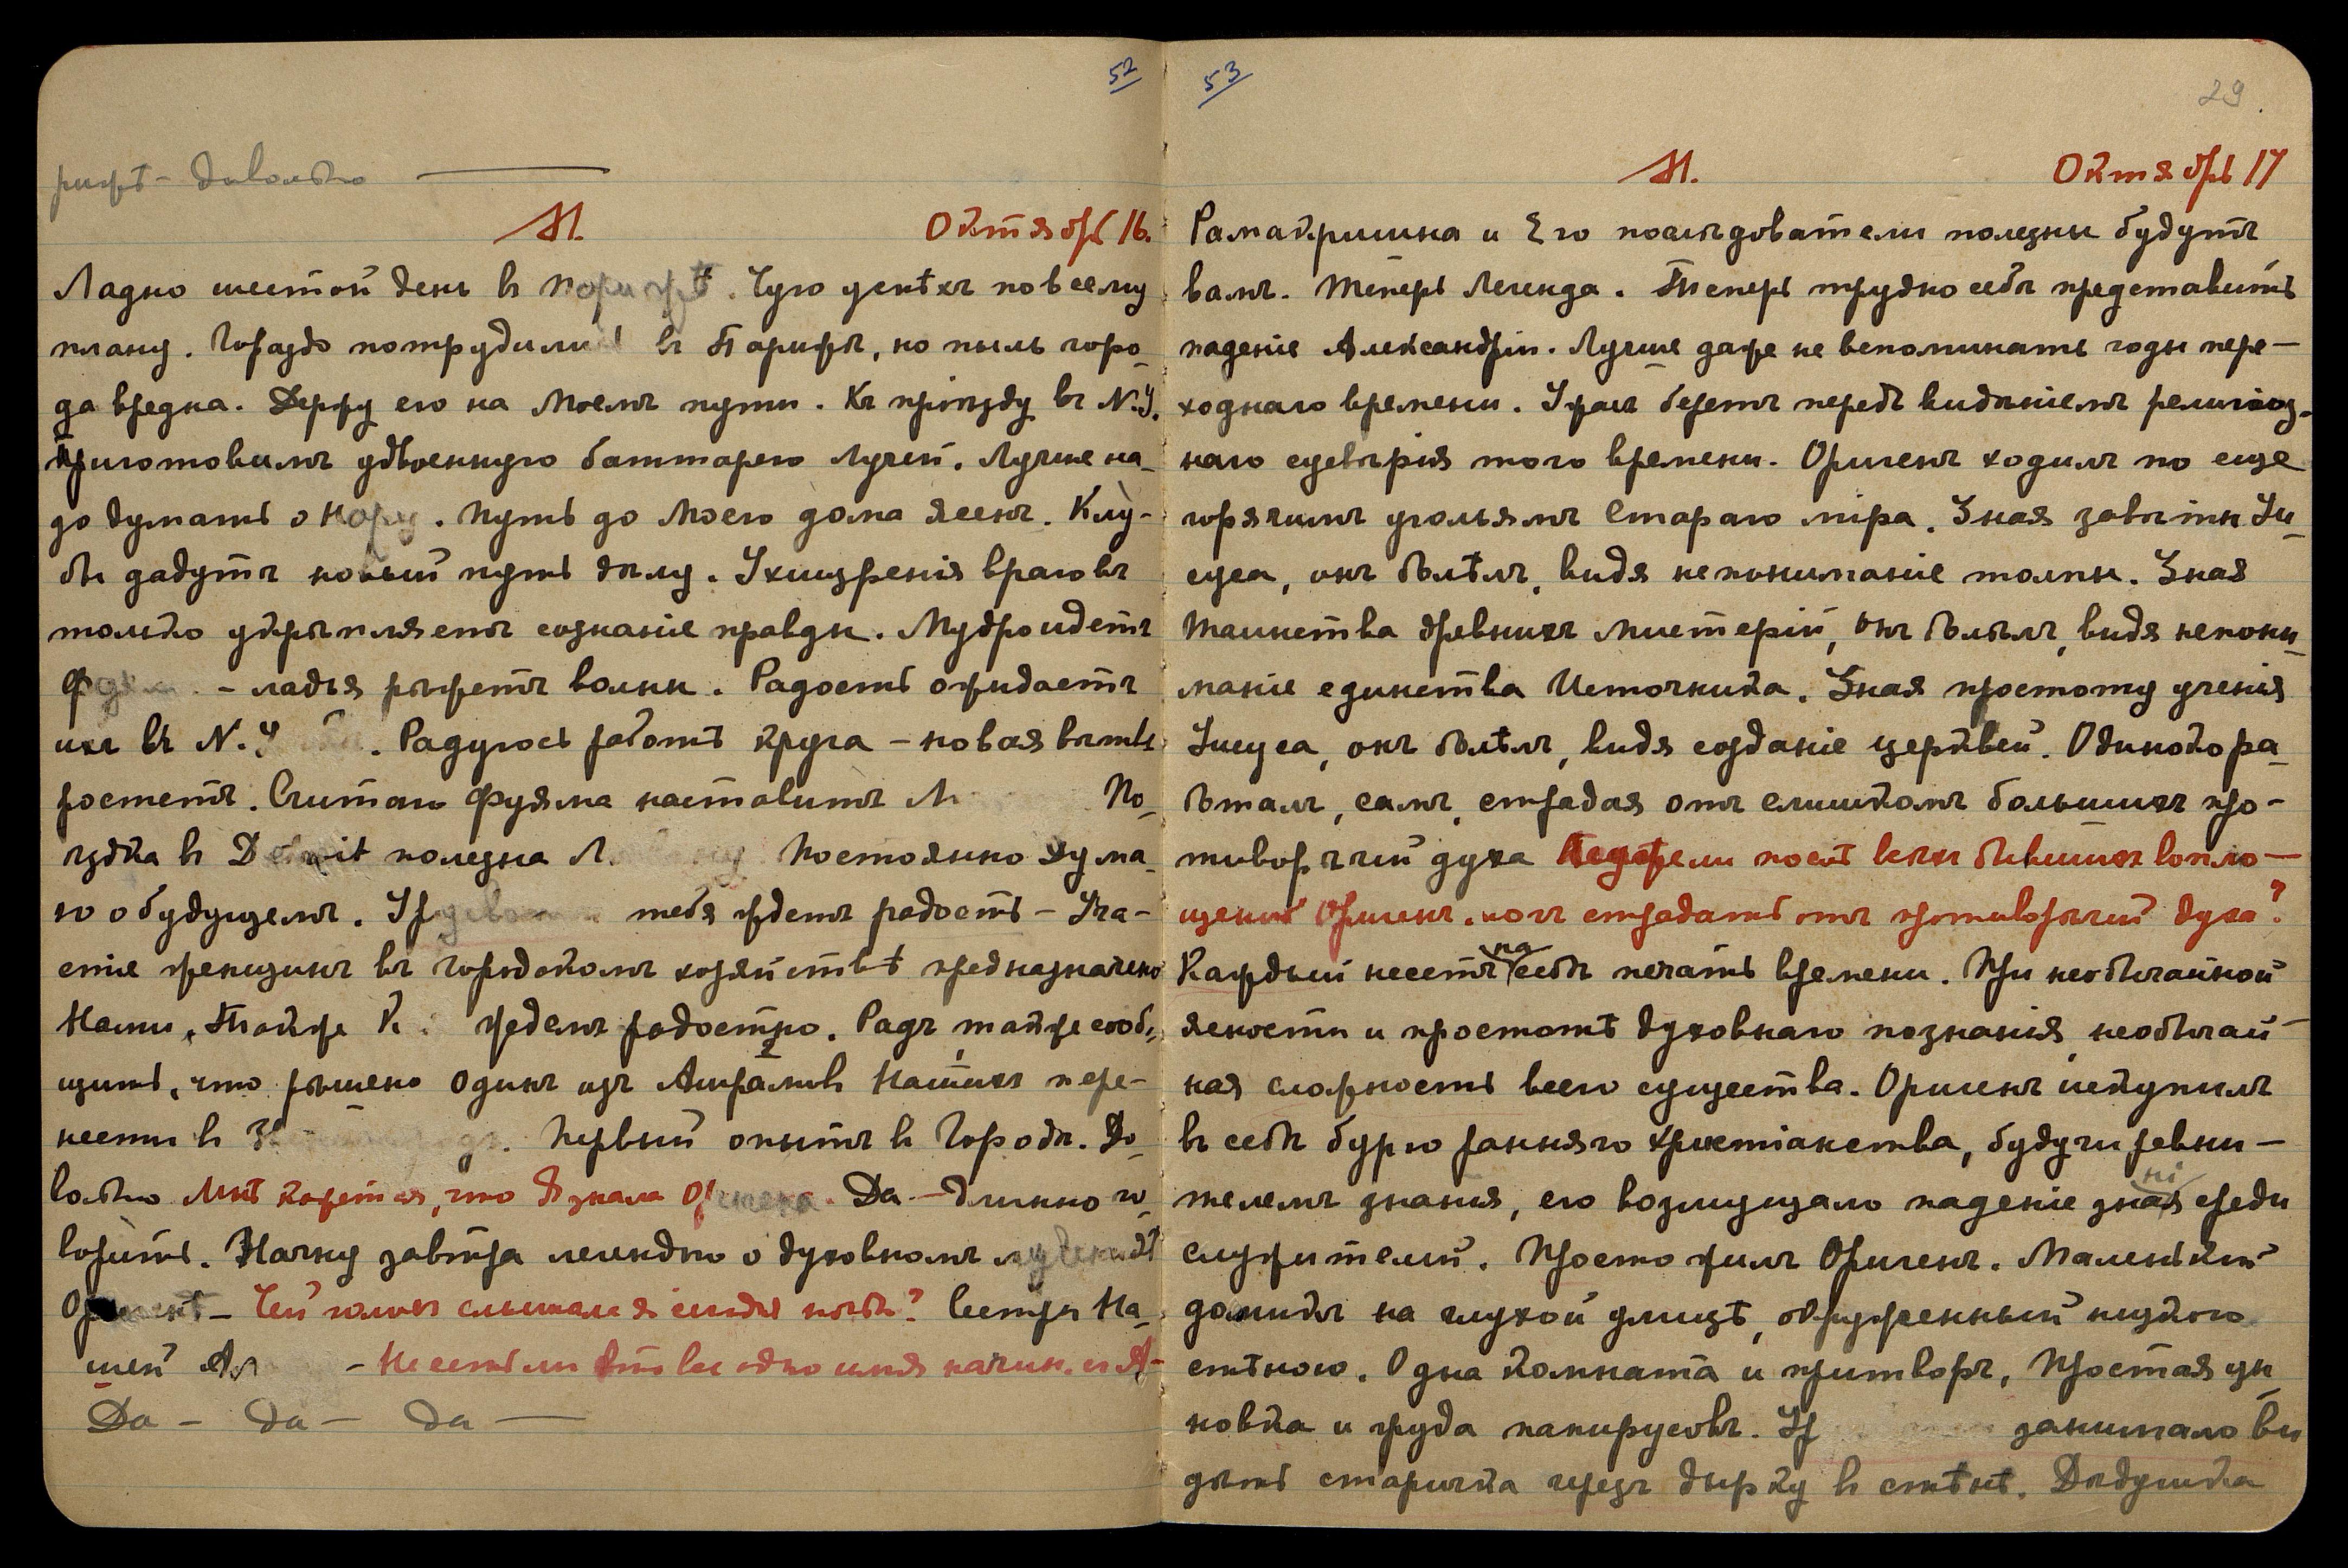 52
рижѣ – довольно
М. Октябрь 16.
Ладно шестой день в Париже. Чую успѣхъ по всему
плану. Гораздо потрудились в Парижѣ, но пыль горо-
да вредна. Держу его на Моемъ пути. Къ пріѣзду въ N.Y.
приготовимъ удвоенную баттарею лучей. Лучше на-
до думать о Нору. Путь до Моего дома ясенъ. Клу-
бы дадутъ новый путь дѣлу. Ухищренія враговъ
только укрѣпляетъ сознаніе правды. Мудро идетъ
– ладья рѣжетъ волны. Радость ожидаетъ
ихъ въ N.Y. Радуюсь работѣ круга – новая вѣтвь
ростетъ. Считаю Фуяма наставитъ Л По-
ѣздка в Detroit полезна Л. Постоянно дума-
ю о будущемъ. Ур тебя ждетъ радость – Уча-
стіе женщинъ въ городскомъ хозяйствѣ предназначено
Нами. Также К. ждемъ радостно. Радъ также сооб-
щить, что рѣшено одинъ изъ Ашрамъ Нашихъ пере-
нести в Первый опытъ в Городѣ. До-
вольно Мнѣ кажется, что я знала Оригена. Да – длинно го-
ворить. Начну завтра легендю о духовномъ
Ор – Чей голосъ слышала я сегодня ночью? Сестры На-
шей Ал – Не есть ли это все одно имя начин. с А–
Да – да – да –
53
29.
М. Октябрь 17
Рамакришна и Его послѣдователи полезны будутъ
вамъ. Теперь Легенда. Теперь трудно себѣ представить
паденіе Александріи. Лучше даже не вспоминать годы пере-
ходнаго времени. Ужасъ беретъ передъ видѣніемъ религіоз-
наго суевѣрія того времени. Оригенъ ходилъ по еще
горячимъ угольямъ Стараго міра. Зная завѣты Іи-
суса, онъ болѣлъ, видя непониманіе толпы. Зная
Таинства древнихъ мистерій, онъ болѣлъ, видя непони-
маніе единства Источника. Зная простоту ученія
Іисуса, онъ болѣлъ, видя созданіе церквей. Одиноко ра-
боталъ, самъ, страдая отъ слишкомъ большихъ про-
тиворѣчій духа Неужели послѣ всѣхъ бывшихъ вопло-
щеній Оригенъ могъ страдать отъ противорѣчій духа?
Каждый несетъ на себѣ печать времени. При необычайной
ясности и простотѣ духовнаго познанія, необычай-
ная сложность всего существа. Оригенъ искупилъ
въ себѣ бурю ранняго христіанства, будучи ревни-
телемъ знанія, его возмущало паденіе знанія среди
служителей. Просто жилъ Оригенъ. Маленькій
домикъ на глухой улицѣ, окруженный низкою
стѣною. Одна комната и притворъ, Простая цы-
новка и груда папирусовъ. Ур занимало ви-
дѣть старичка чрезъ дырку в стѣнѣ. Дѣдушка